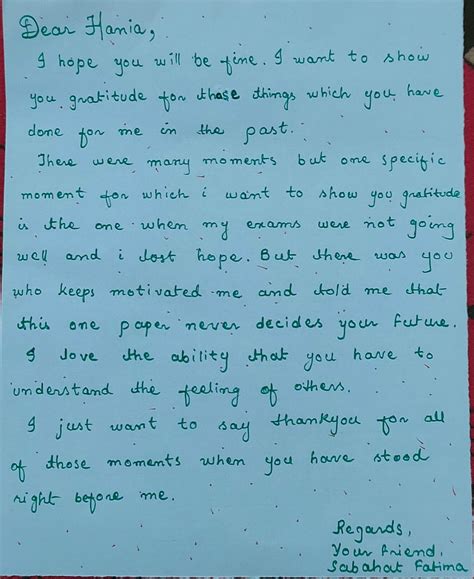 Dear Hania,
I hope you will be fine. I want to show
you gratitude for those things which you have
done for me in the past.
There were many moments but one specific
moment for which i want to show you gratitude
is the one when my exams were not going
well and i lost hope. But there was you
who keeps motivated me and told me that
this one paper never decides your future.
I love the ability that you have to
understand the feeling of others.
I just want to say thankyou for all
of those moments when you have stood
right before me.
Regards,
Your friend,
Sabahat Fatima